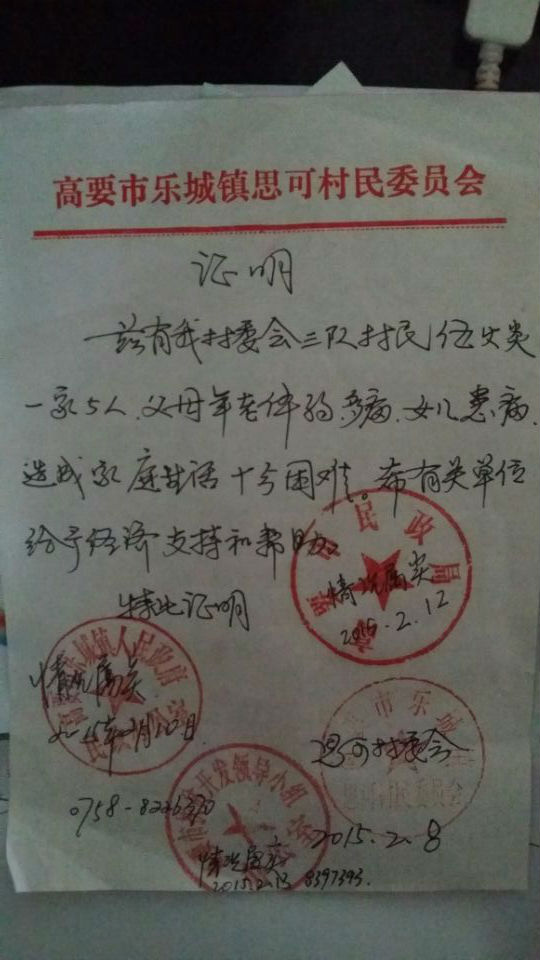 高要市乐城镇思可村民委员会
证明
兹有我村委会三队村民伍火炎
一家5人.父母年老体弱,多病.女儿患病.
造成家庭生活十分困难。希有关单位
给予经济支持和帮助。
特此证明
市民政局
情况属实
2015.2.12
乐城镇人民政府
情况属实
思可村委会
市乐城
思可村民委员会
0758-8226370
开发领导小组
2015.2.8
情况属实
2015.2.13 8397393.